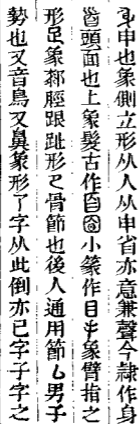 身中也象側立形从人从申省亦意兼聲今隸作身
𦣻頭面也上象髮古作𦣻囼小篆作目手象臂指之
形足象郗脛跟趾形㔾骨節也後人通用節𠃌男子
勢也又音鳥又鼻象形了字从此倒亦巳字子字之